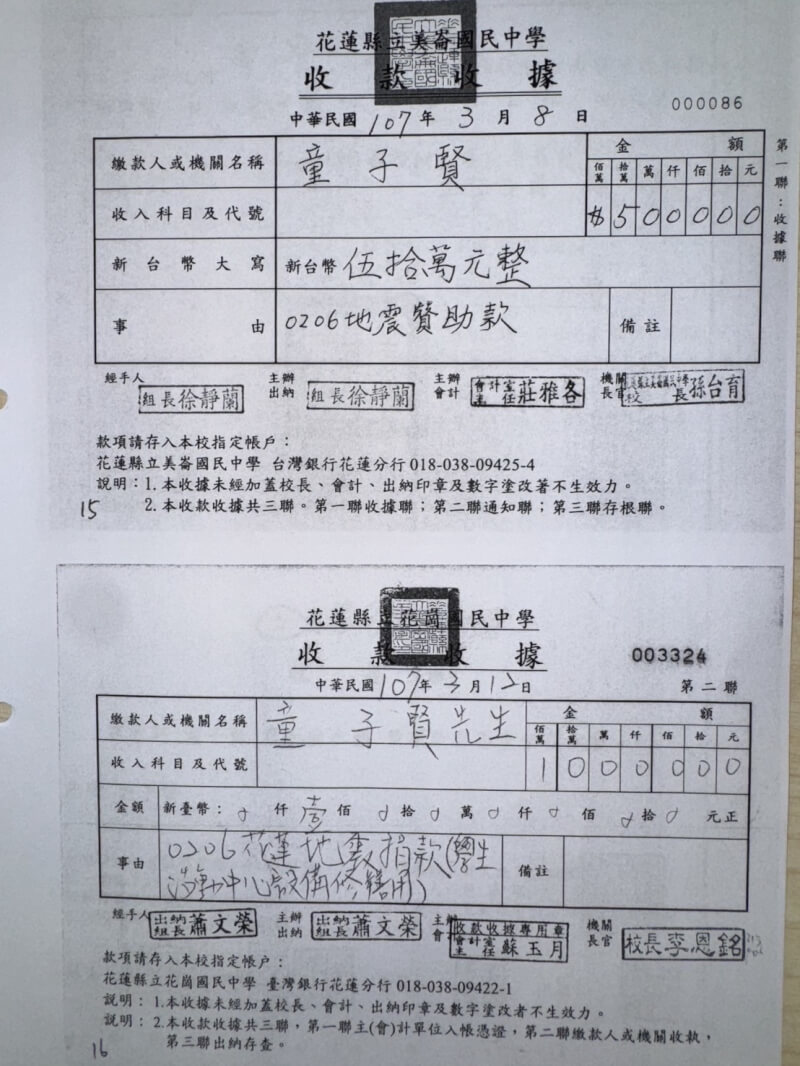 花蓮縣立美崙國民中學
收款收據
000086
中華民國 107 年 3 月 8 日
繳款人或機關名稱 童子賢 金額
佰萬 拾萬 萬 仟 佰 拾 元
收入科目及代號 $ 5 0 0 0 0 0
新台幣大寫 新台幣 伍拾萬元整
事由 0206地震贊助款 備註
第一聯：收據聯
經手人 組長徐靜蘭 主辦出納 組長徐靜蘭 主辦會計 會計室主任莊雅各 機關長官 校長孫台育
款項請存入本校指定帳戶：
花蓮縣立美崙國民中學 台灣銀行花蓮分行 018-038-09425-4
說明：1. 本收據未經加蓋校長、會計、出納印章及數字塗改著不生效力。
2. 本收款收據共三聯。第一聯收據聯；第二聯通知聯；第三聯存根聯。
15
花蓮縣立花崗國民中學
收款收據
003324
中華民國 107 年 3 月 12 日 第二聯
繳款人或機關名稱 童子賢先生 金額
佰萬 拾萬 萬 仟 佰 拾 元
收入科目及代號 1 0 0 0 0 0 0
金額 新臺幣： 0 仟 壹 佰 0 拾 0 萬 0 仟 0 佰 0 拾 0 元正
事由 0206花蓮地震捐款(學生
活動中心設備修繕用) 備註
經手人 出納組長蕭文榮 主辦出納 出納組長蕭文榮 主辦會 收款收據專用章 會計室主任蘇玉月 機關長官 校長李恩銘
款項請存入本校指定帳戶：
花蓮縣立花崗國民中學 臺灣銀行花蓮分行 018-038-09422-1
說明： 1.本收據未經加蓋校長、會計、出納印章及數字塗改者不生效力。
說明： 2.本收款收據共三聯，第一聯主(會)計單位入帳憑證，第二聯繳款人或機關收執，
第三聯出納存查。
16